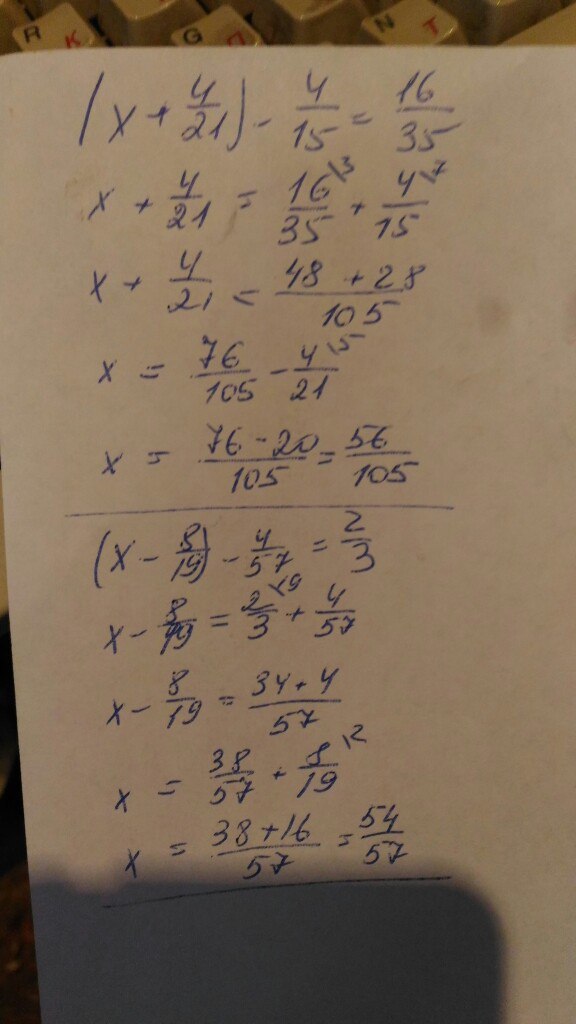 R К G П N Т
(x + 4/21) - 4/15 = 16/35
x + 4/21 = 16/35 \3 + 4/15 \7
x + 4/21 = 48 + 28/105
x = 76/105 - 4/21 \5
x = 76 - 20/105 = 56/105
(x - 8/19) - 4/57 = 2/3
x - 8/19 = 2/3 \19 + 4/57
x - 8/19 = 34 + 4/57
x = 38/57 + 8/19 \2
x = 38 + 16/57 = 54/57